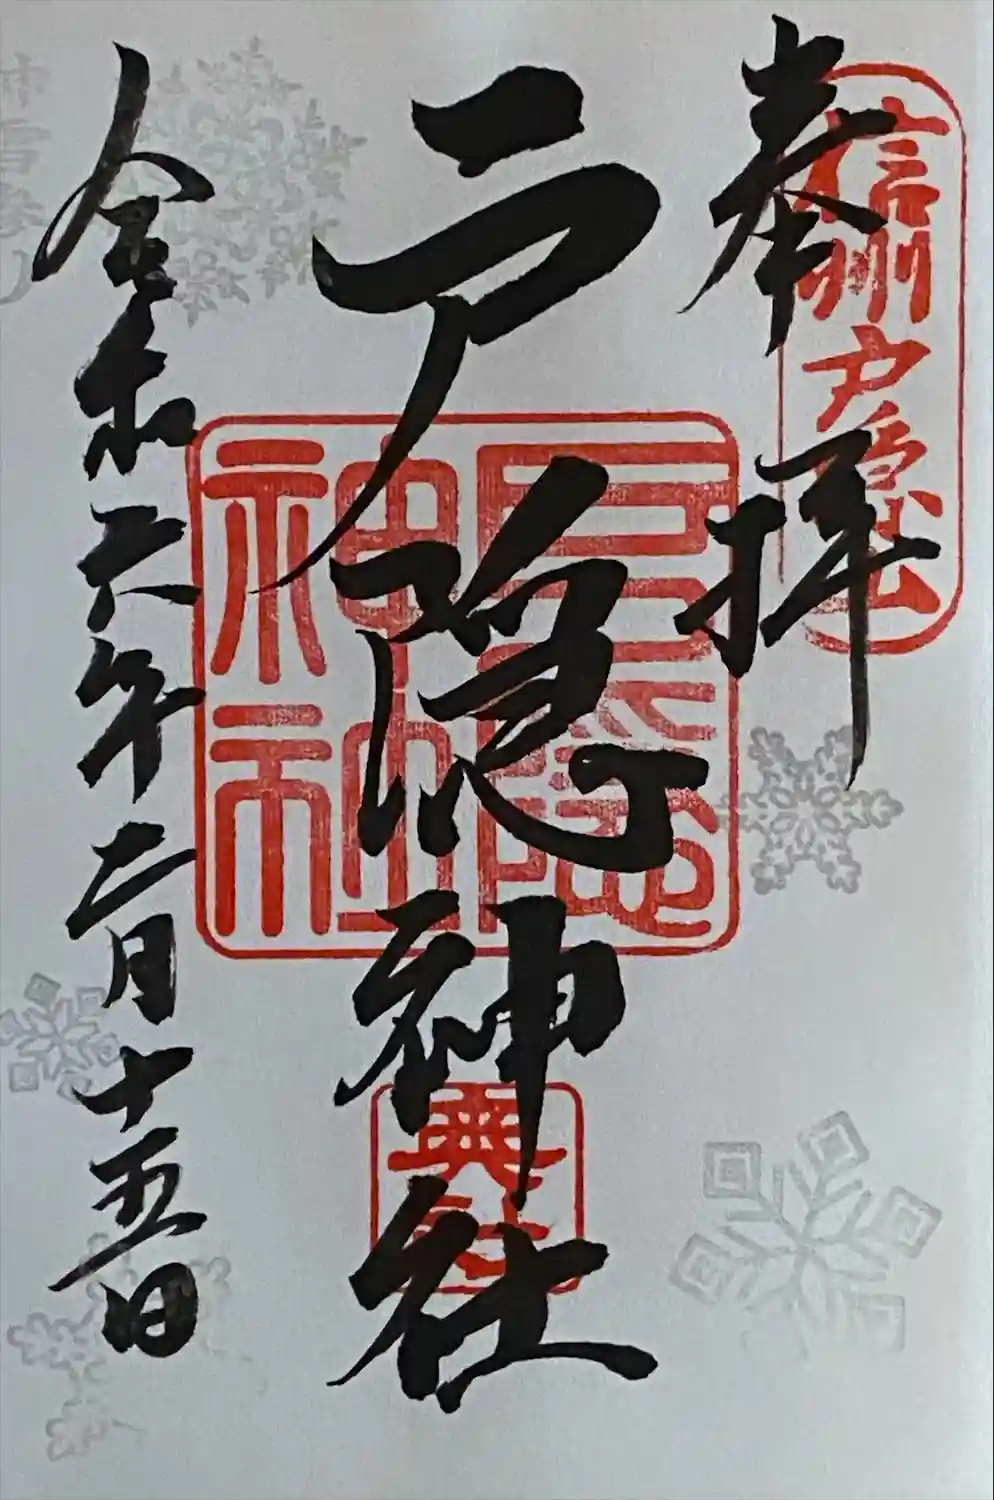 奉拝
信州戸隠山
戸隠神社
戸隠神社
奥社
令和六年二月十五日